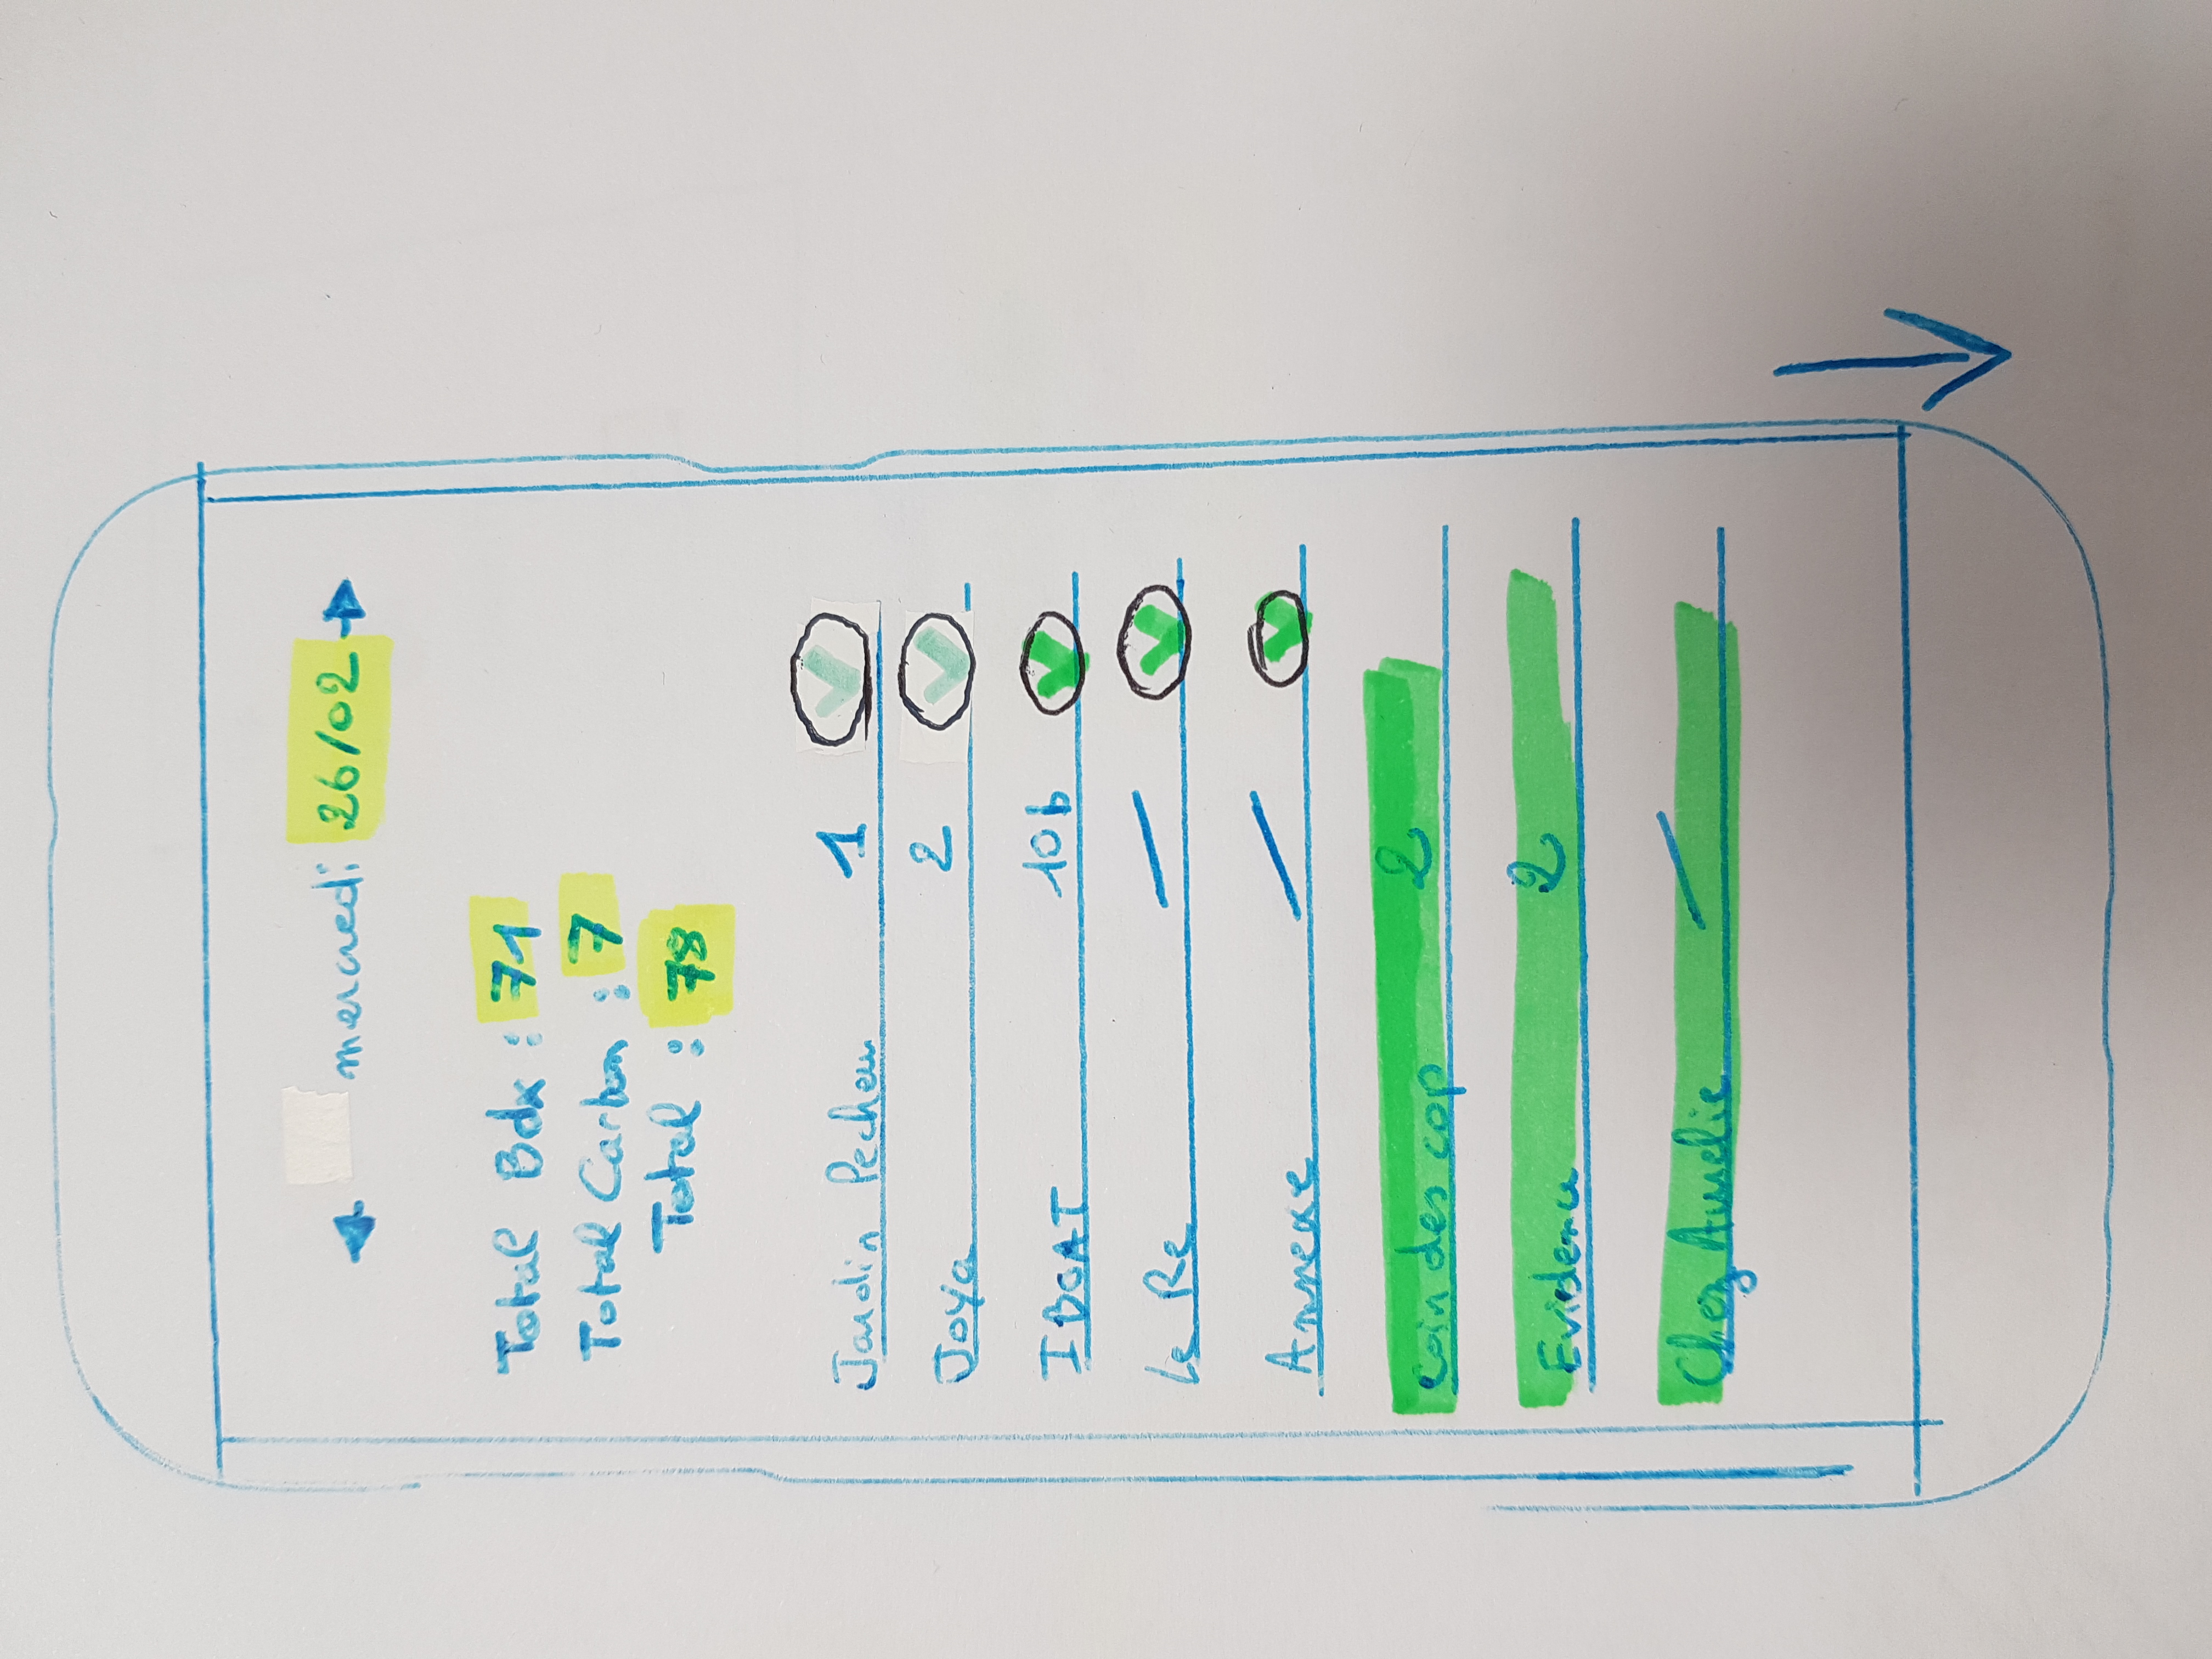 mercredi 26/02
Total Bdx : 71
Total Carbon : 7
Total : 78
Jardin Pecheur 1
Joya 2
IBOAT 10 b
Le Re
Annexe
Coin des cop 2
Evidence 2
Chez Aurelie